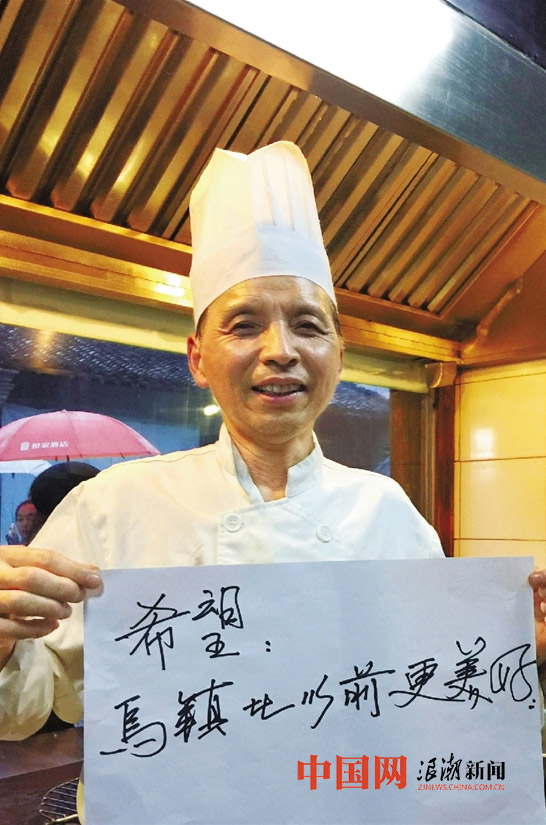 如家酒店
希望：
烏鎮比以前更美好.
中国网 浪潮新闻
ZJNEWS.CHINA.COM.CN